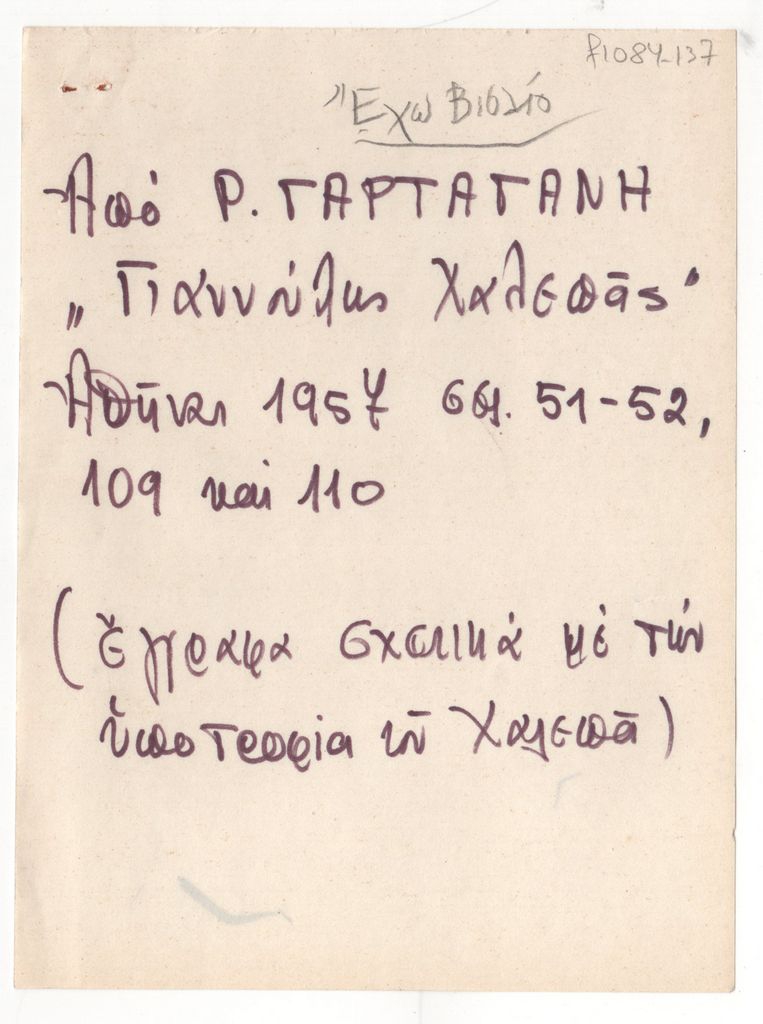 f1084-137
Ἔχω Βιβλίο
Ἀπό Ρ. ΓΑΡΤΑΓΑΝΗ
„Γιαννούλης Χαλεπᾶς"
Ἀθῆναι 1957 σσ. 51-52,
109 καί 110
(ἔγγραφα σχετικά μέ τήν
ὑποτροφία τοῦ Χαλεπᾶ)